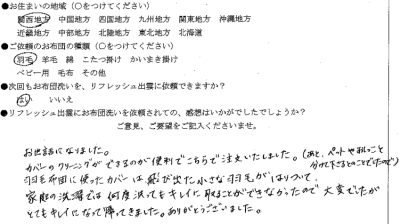 ●お住まいの地域（○をつけてください）
関西地方 中国地方 四国地方 九州地方 関東地方 沖縄地方
近畿地方 中部地方 北陸地方 東北地方 北海道
●ご依頼のお布団の種類（○をつけてください）
羽毛 羊毛 綿 こたつ掛け かいまき掛け
ベビー用 毛布 その他
●次回もお布団洗いを、リフレッシュ出雲に依頼できますか？
はい いいえ
●リフレッシュ出雲にお布団洗いを依頼されての、感想はいかがでしたでしょうか？
ご意見、ご要望をご記入くださいませ。
お世話になりました。
カバーのクリーニングができるのが便利でこちらで注文いたしました。（あと、ペットやおしっこ
分けて下さるとのことでしたので）
羽毛布団に使ったカバーは飛び出た小さな羽毛がはりついて、
家庭の洗濯では何度洗ってもキレイに取ることができなかったので大変でしたが
とてもキレイになって帰ってきました。ありがとうございました。